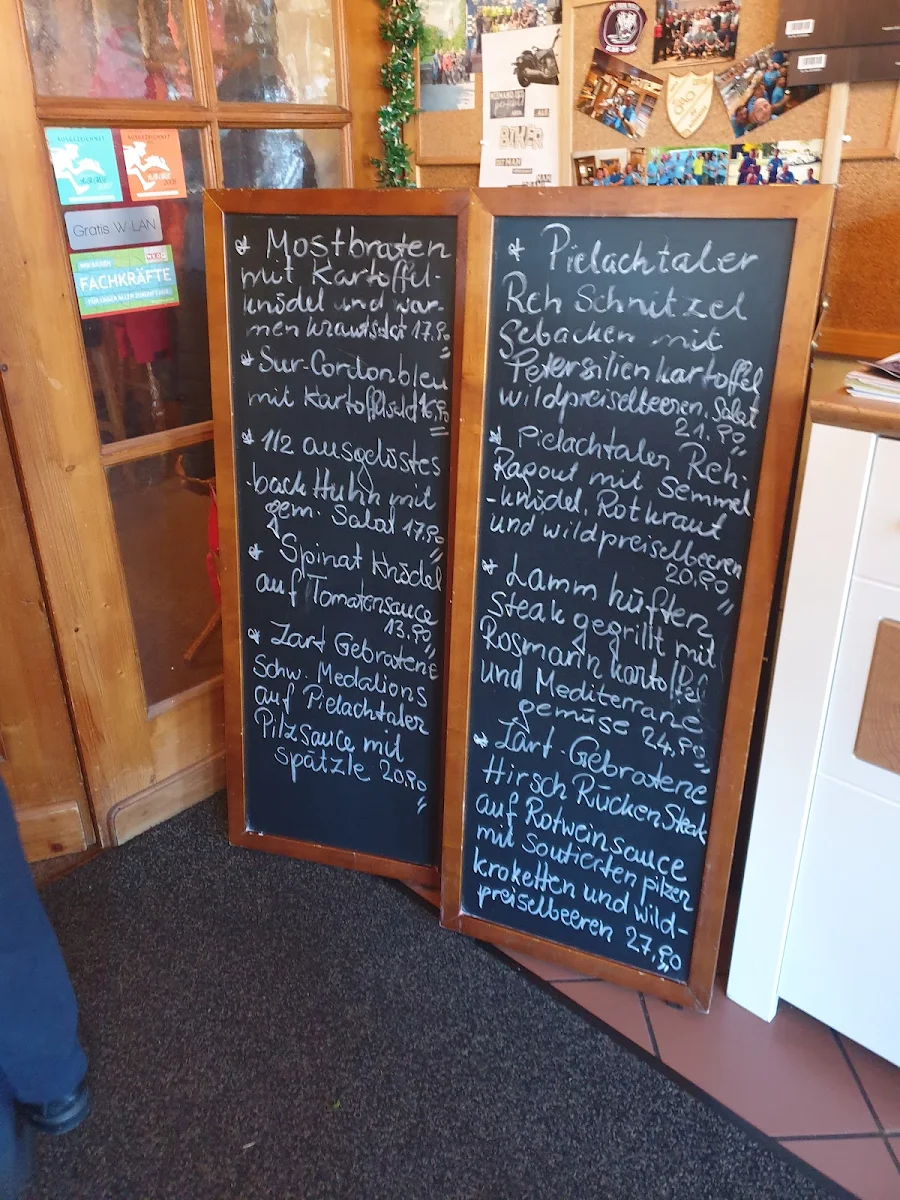 AUSGEZEICHNET
AUSGEZEICHNET
Gratis W-LAN
WIR BILDEN
FACHKRÄFTE
FÜR UNSER ALLER ZUKUNFT AUS!
BIKER
IST MAN
* Mostbraten
mit Kartoffel-
knödel und war-
men krautsalat 17,90
* Sur-Cordonbleu
mit Kartoffelsalat 16,90
* 1/2 ausgelöstes
-back Huhn mit
gem. Salat 17,90
* Spinat Knödel
auf Tomatensauce
13,90
* Zart Gebratene
Schw. Medalions
auf Pielachtaler
Pilzsauce mit
Spätzle 20,90
* Pielachtaler
Reh Schnitzel
Gebacken mit
Petersilienkartoffel
wildpreiselbeeren, Salat
21,90
* Pielachtaler Reh-
Ragout mit Semmel
-knödel, Rotkraut
und wildpreiselbeeren
20,90
* Lamm hüften
Steak gegrillt mit
Rosmarin kartoffel
und Mediterrane
gemüse 24,90
* Zart-Gebratene
Hirsch Rücken Steak
auf Rotweinsauce
mit Soutierten pilzen
kroketten und wild-
preiselbeeren 27,90